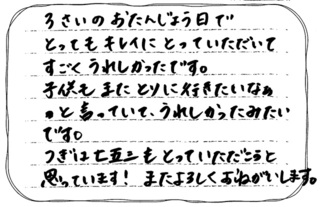 3さいの おたんじょう日で
とっても キレイに とっていただいて
すごく うれしかったです。
子供も また とりに行きたいなぁ
っと 言っていて、うれしかったみたい
です。
つぎは 七五三も とっていただこうと
思っています! またよろしくおねがいします。